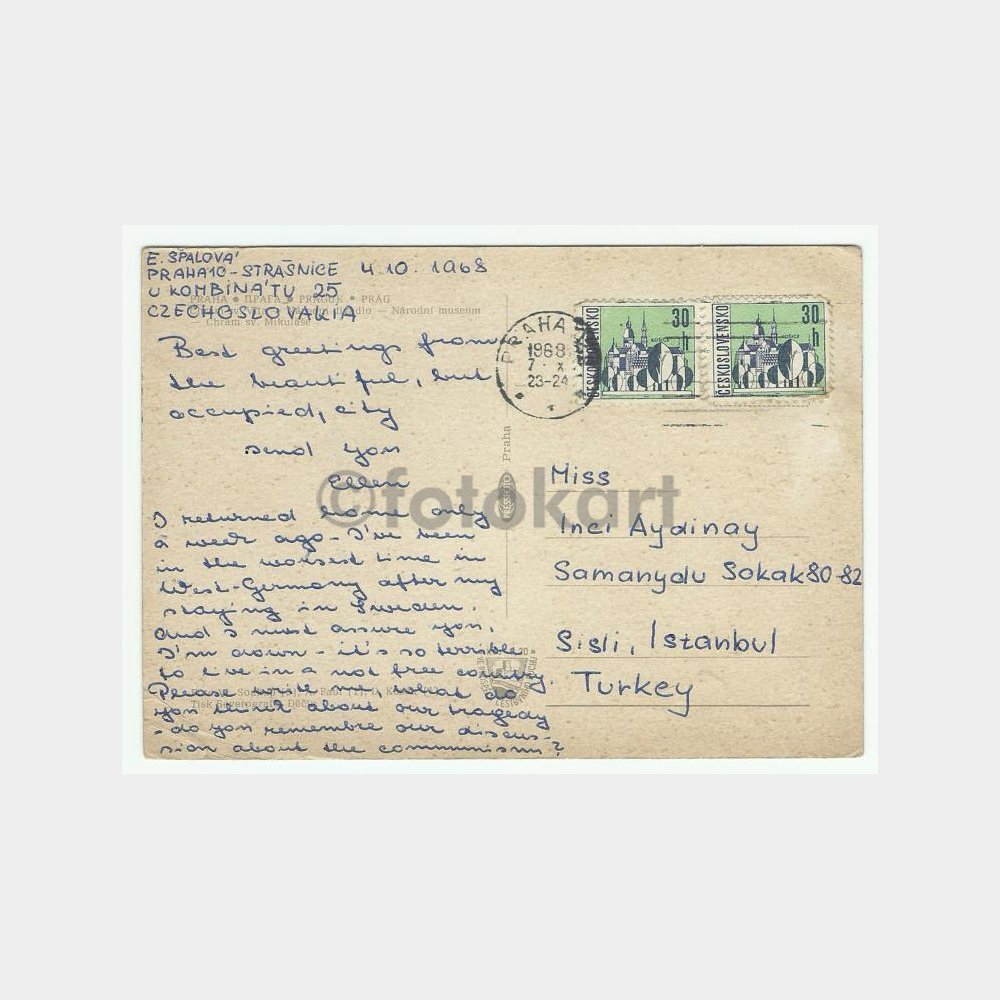 E. ŠPALOVÁ
PRAHA 10 - STRAŠNICE 4.10.1968
U KOMBINÁTU 25
CZECHOSLOVAKIA
PRAHA • ПРАГА • PRAGUE • PRAG
Národní museum
— Chrám sv. Mikuláše
Best greetings from
the beautiful, but
occupied, city
send you
Ellen
I returned home only
a week ago - I've been
in the worsest time in
West-Germany after my
staying in Sweden.
And I must assure you,
I'm down - it's so terrible
to live in a not free country.
Please write me, what do
you think about our tragedy
- do you remembre our discus-
sion about the communism?
Tisk Severografia
PRESSFOTO Praha
PRAHA
1968
7. X
23-24
ČESKOSLOVENSKO
30
h
ČESKOSLOVENSKO
30
h
Miss
Inci Aydinay
Samanyolu Sokak 80-82
Sisli, Istanbul
Turkey
©fotokart